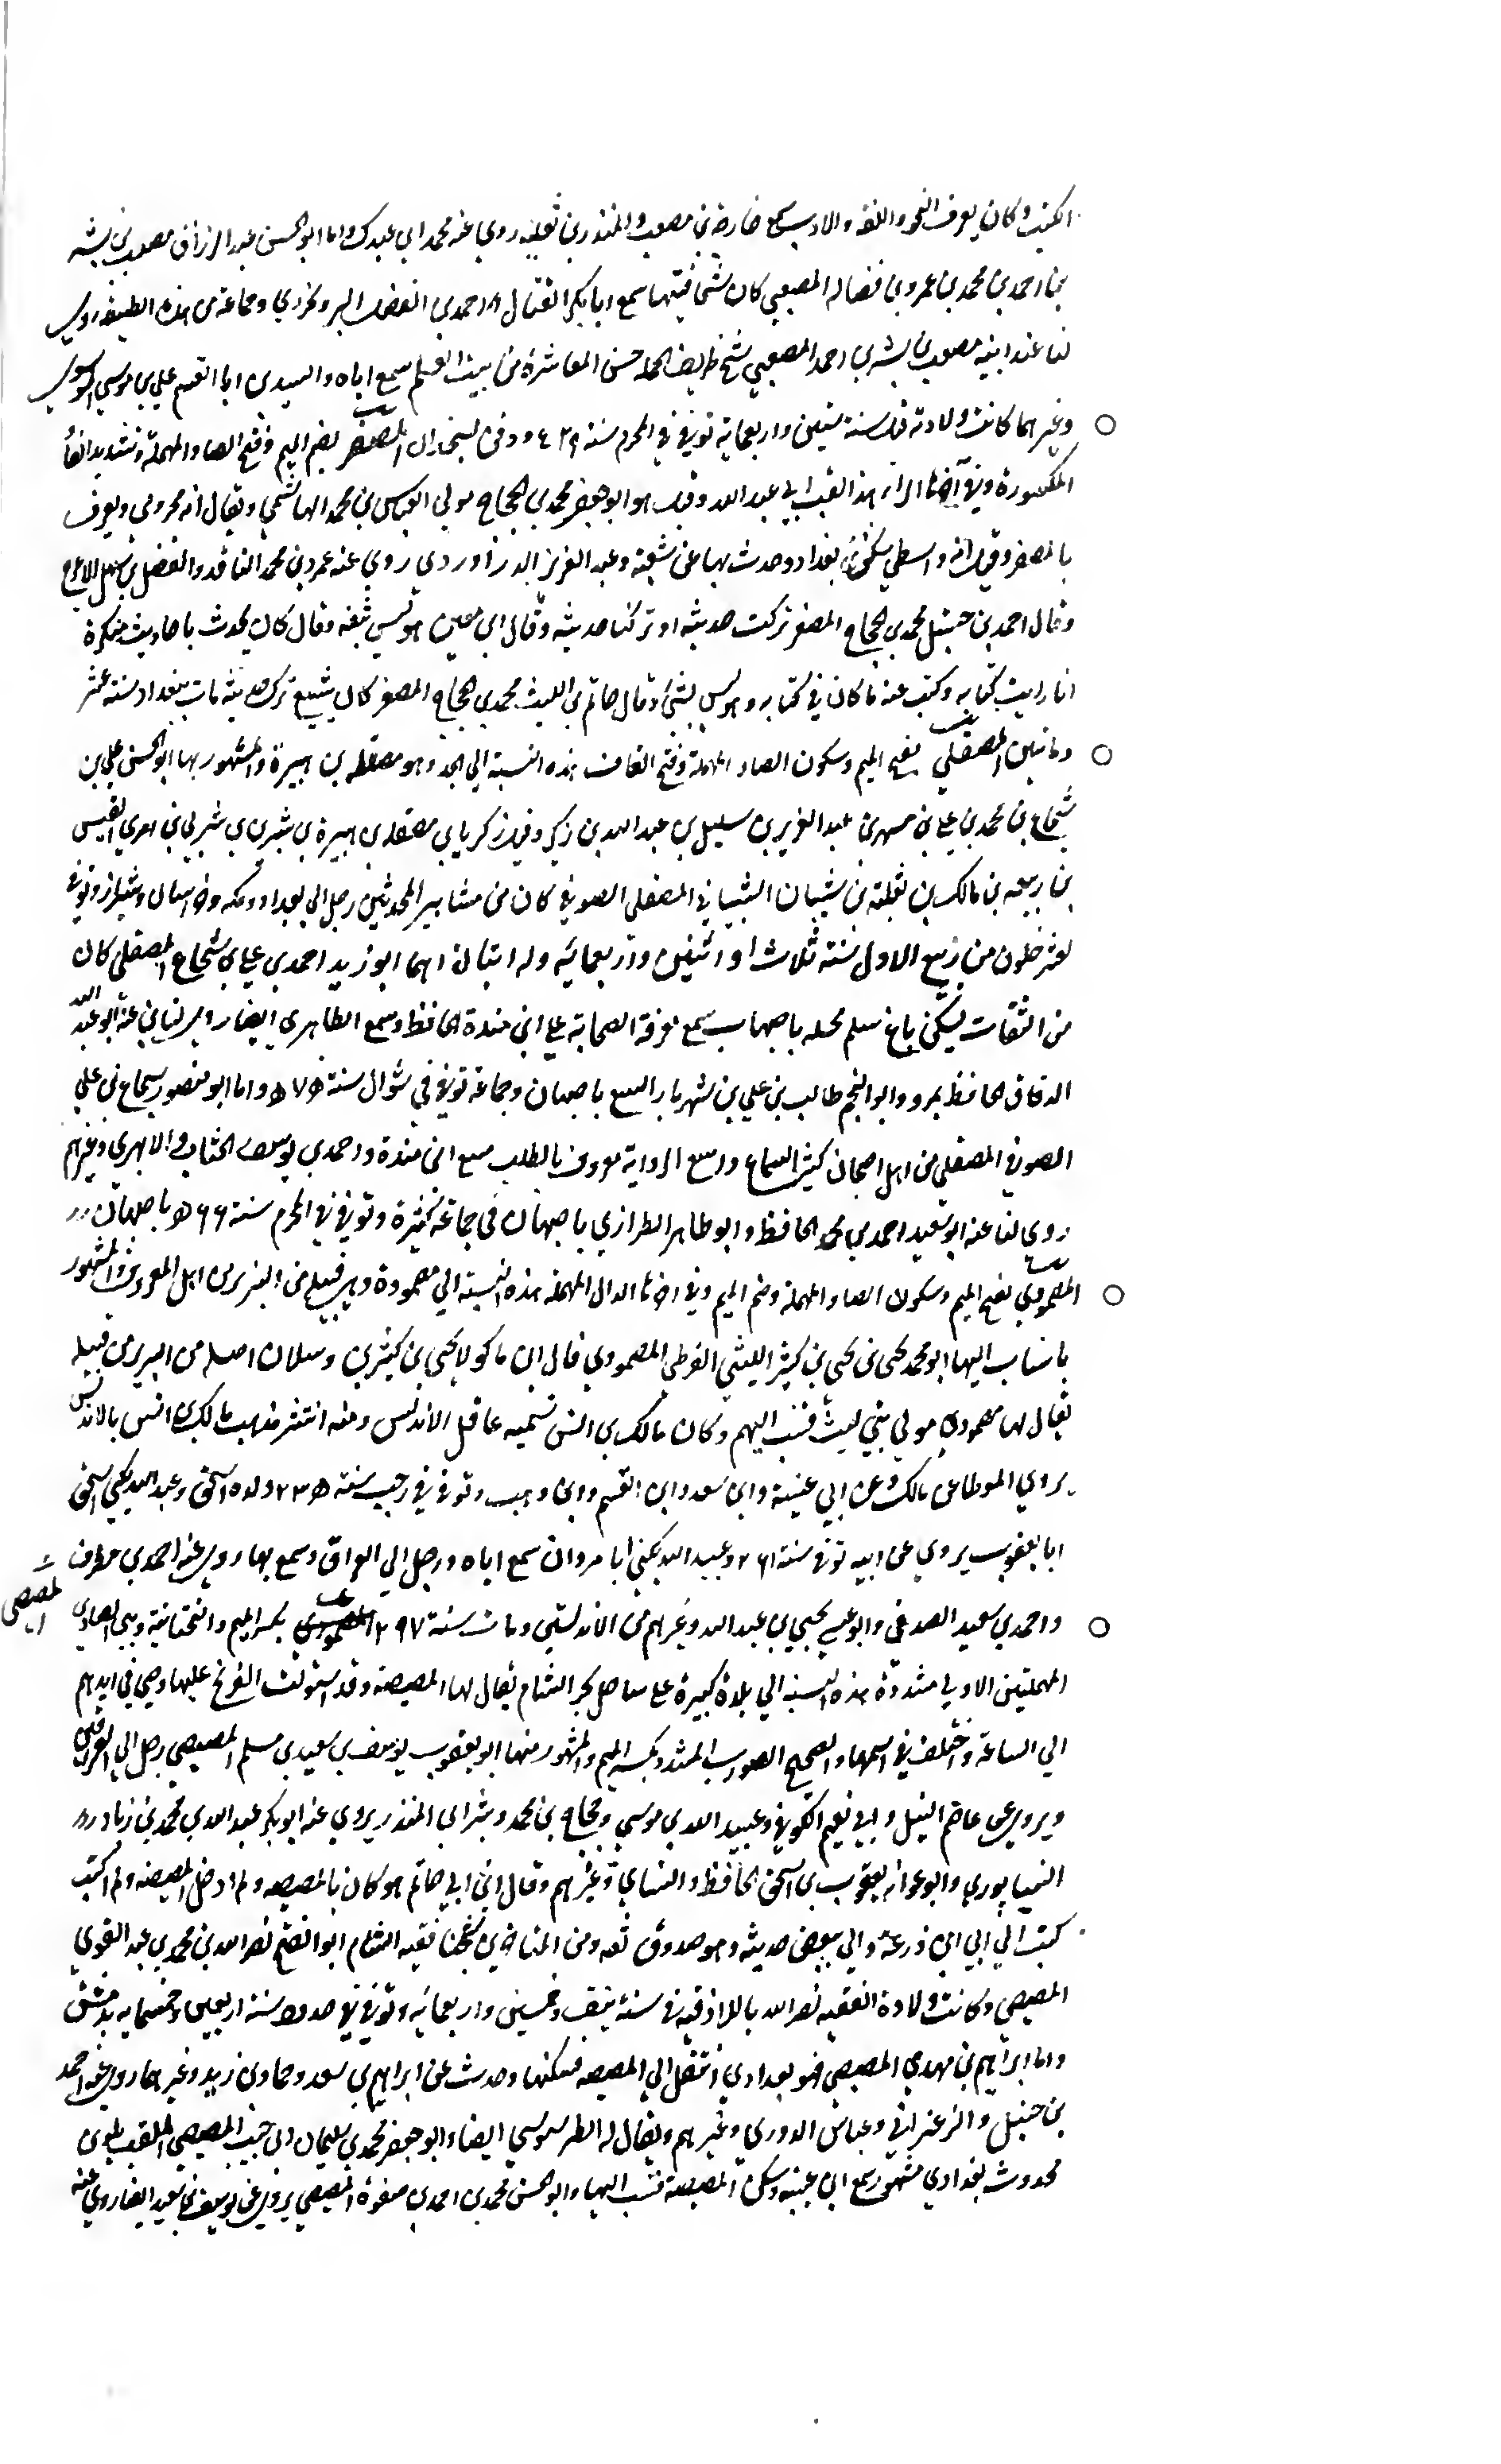 الكتب وكان يعرف النحو واللغة والادب سمع خارجة بن مصعب والمنذر بن ثعلبة روي عنه محمد ابن عبدك واما ابو الحسن عبد الرزاق مصعب بن بشر
بن احمد بن محمد بن عمرو بن فضاله المصعبي كان شيخا فقيها سمع ابا بكر القفال احمد بن الفضل البروخردي وجماعة من هذه الطبقة روي
لنا عنه ابنه مصعب بن بشر بن احمد المصعبي شيخ ظريف الجملة حسن المعاشرة من بيت العلم سمع اباه والسيد بن ابا القسم علي بن موسي الموسوي
وغيرهما كانت ولادته قبل سنة ستين واربعماية توفي في المحرم سنة ٤٣٩ ودفن بسنجدان المصفر بضم الميم وفتح الصاد المهملة وتشديد الفاء
المكسورة وفي آخرها الراء هذا لقب ابي عبد الله وقيل هو ابو جعفر محمد بن الحجاج مولي العباس بن محمد الهاشمي ويقال انه مخرومي ويعرف
بالمصفر وقيل انه واسطي سكن بغداد وحدث بها عن شعبة وعبد العزيز الدراوردي روي عنه عمرو بن محمد الناقد والفضل بن سهل الاعرج
وقال احمد بن حنبل محمد بن الحجاج المصفر تركت حديثه او تركنا حديثه وقال ابن معين هو ليس بثقه وقال كان يحدث باحاديث منكرة
انا رايت كتابه وكتبت عنه ما كان في كتابه وهو ليس بشيء وقال حاتم بن الليث محمد بن الحجاج المصفر كان يتشيع ترك حديثه مات ببغداد سنة عشر
ومائتين المصقلي بفتح الميم وسكون الصاد المهملة وفتح القاف هذه النسبة الي الجد وهو مصقله بن هبيرة والمشهور بها ابو الحسن علي بن
شجاع بن محمد بن علي بن مسهر بن عبد العزيز بن سليل بن عبد الله بن زكير وقيل زكريا بن مصقله بن هبيرة بن شبر بن يثربي بن امري القيس
بن ربيعه بن مالك بن ثعلبة بن شيبان الشيباني المصقلي الصوفي كان من مشاهير المحدثين رحل الي بغداد ومكه وخراسان وشيراز وتوفي
لعشر خلون من ربيع الاول سنة ثلاث او اثنين واربعمائه وله ابنان احدهما ابو زيد احمد بن علي بن شجاع المصقلي كان
من الثقات يسكن باغ سلم محله باصبهان سمع معرفة الصحابة علي ابن مندة الحافظ وسمع الطاهري ايضا روي لنا عنه ابو عبد الله
الدقاق الحافظ بمرو وابو النجم طالب بن علي بن شهريار باصبهان وجماعة توفي في شوال سنة ٤٧٥ واما ابو منصور شجاع بن علي
الصوفي المصقلي من اهل اصبهان كثير السماع واسع الرواية معروف بالطلب سمع ابن مندة واحمد بن يوسف الخشاب والابهري وغيرهم
روي لنا عنه ابو سعيد احمد بن محمد الحافظ وابو طاهر الطرازي باصبهان في جماعة كثيرة وتوفي في المحرم سنة ٤٦٦ باصبهان
المصمودي بفتح الميم وسكون الصاد المهملة وضم الميم وفي اخرها الدال المهملة هذه النسبة الي مصمودة وهي قبيلة من البربر من اهل المغرب والمشهور
بانتساب اليها ابو محمد يحيي بن يحيي بن كثير الليثي القرطبي المصمودي قال ابن ماكولا يحيي بن كثير بن وسلان اصله من البربر من قبيله
يقال لها مصمودي مولي بني ليث فنسب اليهم وكان مالك بن انس تسميه عاقل الاندلس ومنه انتشر مذهب مالك بن انس بالاندلس
يروي الموطا عن مالك وعن ابن عيينة وابن سعد وابن القسم وابن وهب وتوفي في رجب سنة ٢٣٤ ولده اسحق وعبد الله يكني اسحق
ابا يعقوب يروي عن ابيه توفي سنة ٢٦١ وعبيد الله يكني ابا مروان سمع اباه ورحل الي العراق وسمع بها روي عنه احمد بن مطرف
المصيصي
واحمد بن سعيد الصدفي وابو عيسي يحيي بن عبد الله وغيرهم من الاندلسيين ومات سنة ٢٩٧ المصمودي بكسر الميم والتحتانية وبين الصادين
المهملتين الاولي مشددة هذه النسبة الي بلدة كبيرة علي ساحل بحر الشام يقال لها المصيصة وقد استولت الفرنج عليها وهي في ايديهم
الي الساعة واختلف في اسمها والصحيح الصواب المشدد بكسر الميم والمشهور منها ابو يعقوب يوسف بن سعيد بن مسلم المصيصي رحل الي العراقين
ويروي عن عاصم النبيل وابي نعيم الكوفي وعبيد الله بن موسي وحجاج بن محمد وبشر ابن المنذر يروي عنه ابو بكر عبد الله بن محمد بن زياد
النيسابوري وابو عوانه يعقوب بن اسحق الحافظ والنسائي وغيرهم وقال ابن ابي حاتم هو كان بالمصيصه ولم ادخل المصيصه ولم اكتب
كتب الي ابي ابن زرعة والي ببعض حديثه وهو صدوق ثقه ومن المتاخرين شيخنا فقيه الشام ابو الفتح نصر الله بن محمد بن عبد القوي
المصيصي وكانت ولادة الفقيه نصر الله باللاذقيه في سنة نيف وخمسين واربعمائه وتوفي في حدود سنة اربعين وخمسمايه بدمشق
واما ابراهيم بن مهدي المصيصي فهو بغدادي انتقل الي المصيصه فسكنها وحدث عن ابراهيم بن سعد وحماد بن زيد وغيرهما روي عنه احمد
بن حنبل والزعفراني وعباس الدوري وغيرهم ويقال له الطرسوسي ايضا وابو جعفر محمد بن سليمان ابن حبيب المصيصي الملقب بلوين
محدث بغدادي مشهور سمع ابن عيينة وسكن المصيصة فنسب اليها وابو الحسن محمد بن احمد بن صفوة المصيصي يروي عن يوسف بن سعيد ايضا روي عنه